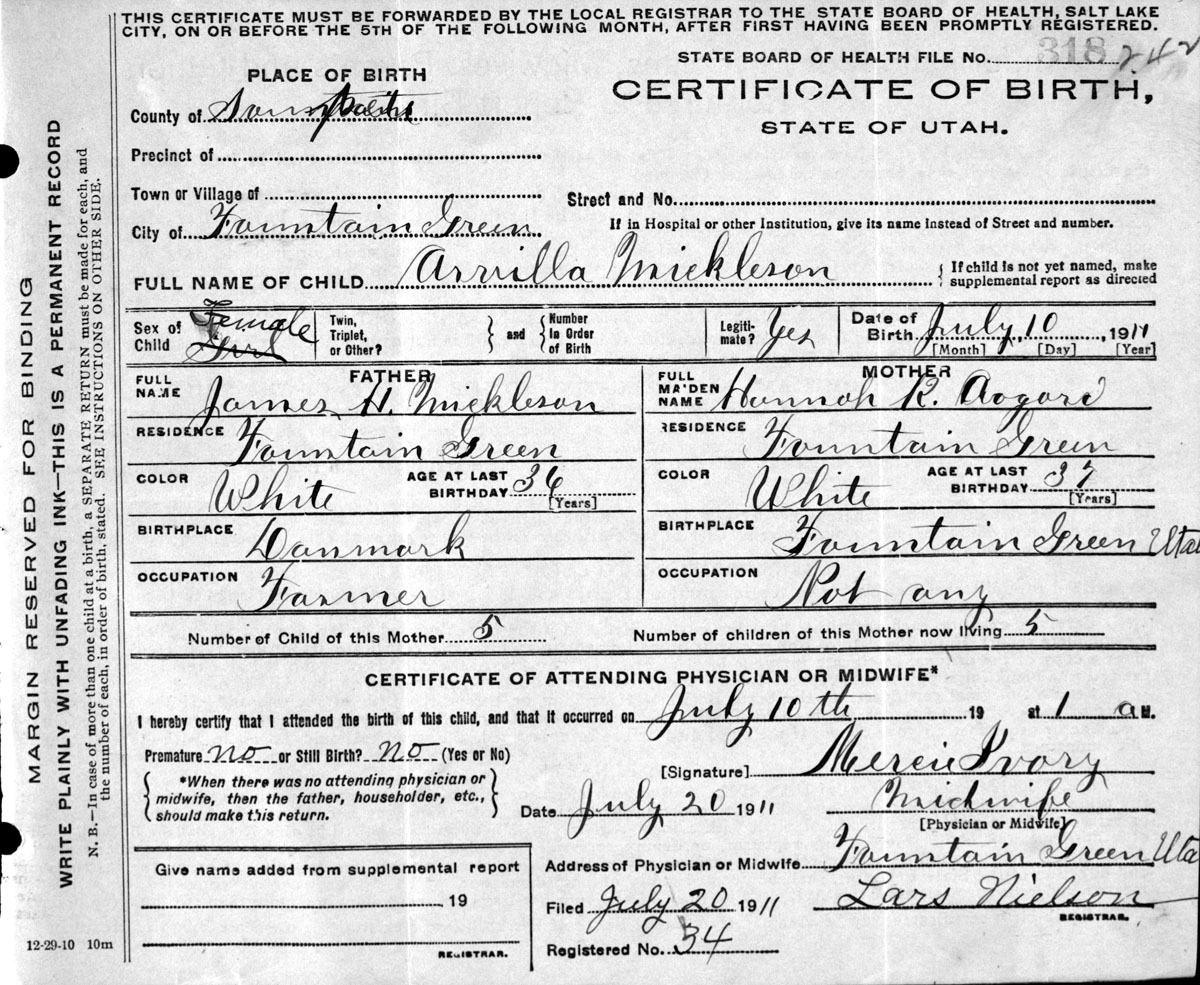 THIS CERTIFICATE MUST BE FORWARDED BY THE LOCAL REGISTRAR TO THE STATE BOARD OF HEALTH, SALT LAKE
CITY, ON OR BEFORE THE 5TH OF THE FOLLOWING MONTH, AFTER FIRST HAVING BEEN PROMPTLY REGISTERED.
STATE BOARD OF HEALTH FILE No. 318 242
PLACE OF BIRTH
CERTIFICATE OF BIRTH,
STATE OF UTAH.
County of
Precinct of
Town or Village of
Street and No.
City of Fountain Green
If in Hospital or other Institution, give its name instead of Street and number.
FULL NAME OF CHILD Arvilla Mickleson
{ If child is not yet named, make
supplemental report as directed
Sex of Child Female Girl
Twin, Triplet, or Other?
and
Number in Order of Birth
Legitimate? Yes
Date of Birth July 10, 1911
[Month] [Day] [Year]
FATHER
FULL NAME James H. Mickleson
RESIDENCE Fountain Green
COLOR White
AGE AT LAST BIRTHDAY 36
[Years]
BIRTHPLACE Danmark
OCCUPATION Farmer
MOTHER
FULL MAIDEN NAME Hannah R.
RESIDENCE Fountain Green
COLOR White
AGE AT LAST BIRTHDAY 37
[Years]
BIRTHPLACE Fountain Green Utah
OCCUPATION Not any
Number of Child of this Mother 5
Number of children of this Mother now living 5
CERTIFICATE OF ATTENDING PHYSICIAN OR MIDWIFE*
I hereby certify that I attended the birth of this child, and that it occurred on July 10th 19 at 1 a M.
Premature no or Still Birth? No (Yes or No)
*When there was no attending physician or
midwife, then the father, householder, etc.,
should make this return.
[Signature] Mercie Ivory
Date July 20 1911
Midwife
[Physician or Midwife]
Address of Physician or Midwife Fountain Green Uta
Give name added from supplemental report
19
REGISTRAR.
Filed July 20 1911
Lars Nielson
REGISTRAR.
Registered No. 34
12-29-10 10m
MARGIN RESERVED FOR BINDING
WRITE PLAINLY WITH UNFADING INK—THIS IS A PERMANENT RECORD
N. B.—In case of more than one child at a birth, a SEPARATE RETURN must be made for each, and
the number of each, in order of birth, stated. SEE INSTRUCTIONS ON OTHER SIDE.